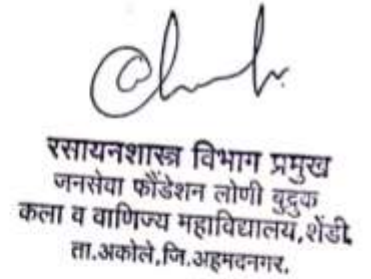 रसायनशास्त्र विभाग प्रमुख
जनसेवा फौंडेशन लोणी बुद्रुक
कला व वाणिज्य महाविद्यालय,शेंडी
ता.अकोले,जि.अहमदनगर.